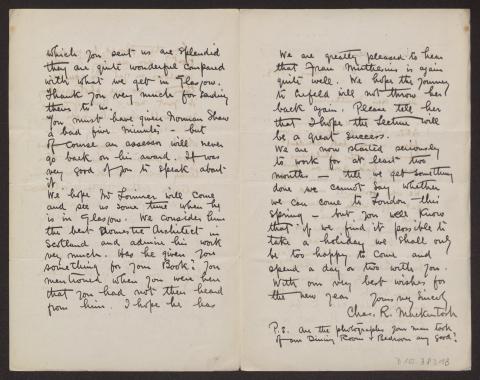 which you sent us are splendid
they are quite wonderful compared
with what we get in Glasgow.
Thank you very much for sending
them to us.
You must have given Norman Shaw
a bad five minutes - but
of course an assessor will never
go back on his award. It was
very good of you to speak about
it
We hope Mr Lorimer will come
and see us some time when he
is in Glasgow. We consider him
the best Domestic Architect in
Scotland and admire his work
very much. Has he given you
something for your Book? You
mentioned when you were here
that you had not then heard
from him. I hope he has
We are greatly pleased to hear
that Frau Muthesius is again
quite well. We hope the journey
to Krefeld will not throw her
back again. Please tell her
that I hope the lecture will
be a great success.
We are now started seriously
to work for at least two
months - till we get something
done we cannot say whether
we can come to London this
Spring - but you well know
that if we find it possible to
take a holiday we shall only
be too happy to come and
spend a day or two with you.
With our very best wishes for
the new year
Yours very sincerely
Chas. R. Mackintosh
P.S. Are the photographs your man took
of our Dining Room & Bedroom any good?